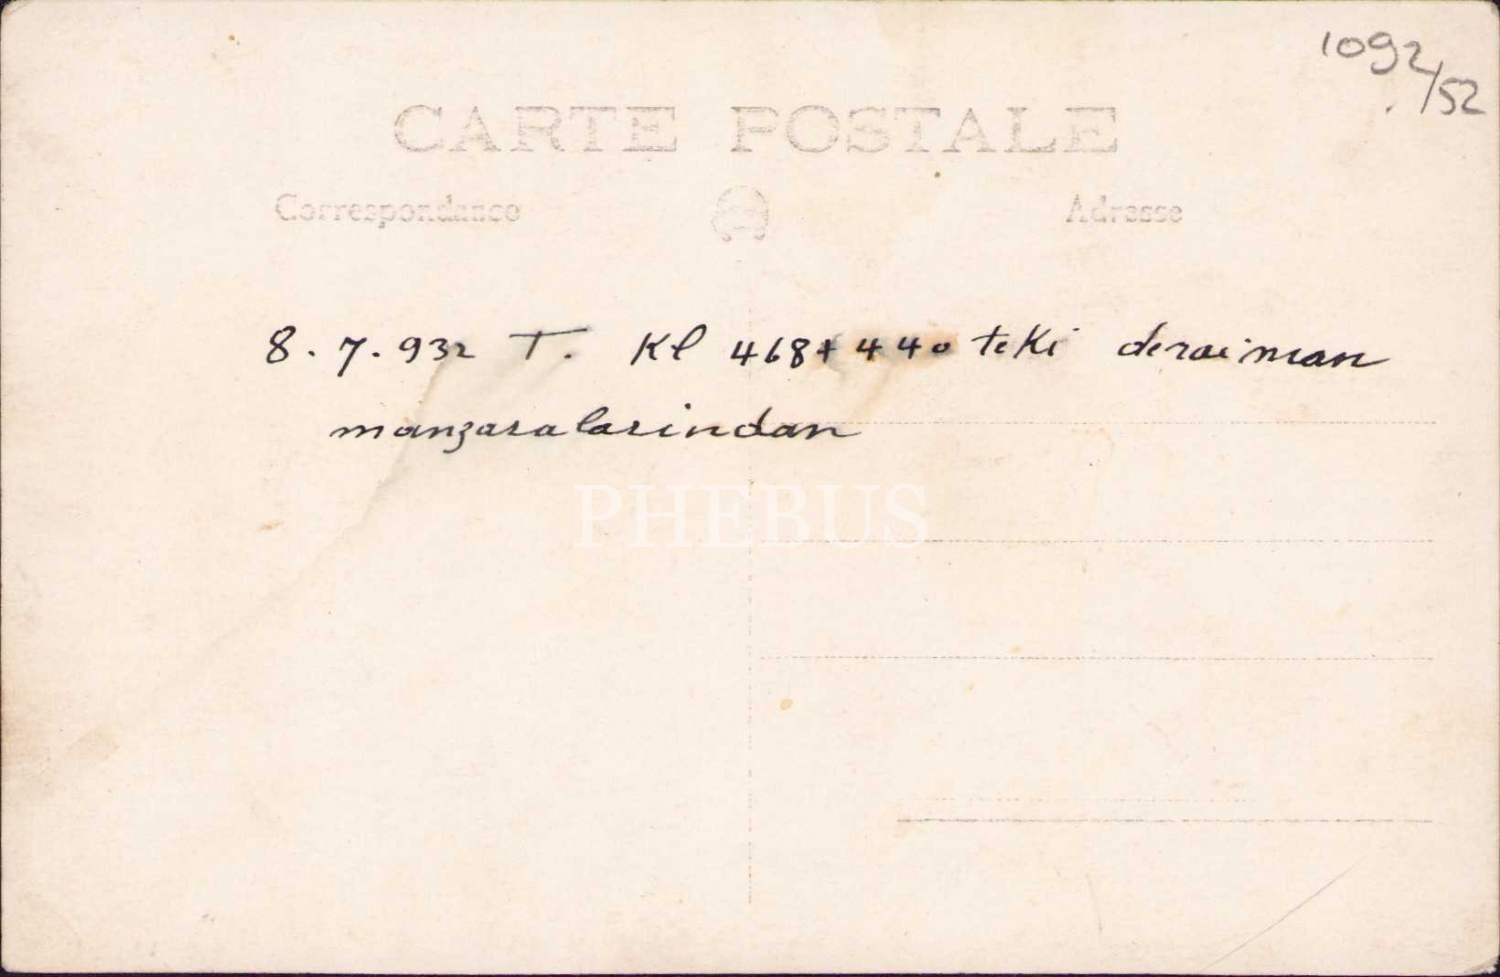 1092/52
CARTE POSTALE
Correspondance
Adresse
8.7.932 T. Kl 468+440 teki deraiman
manzaralarindan
PHEBUS